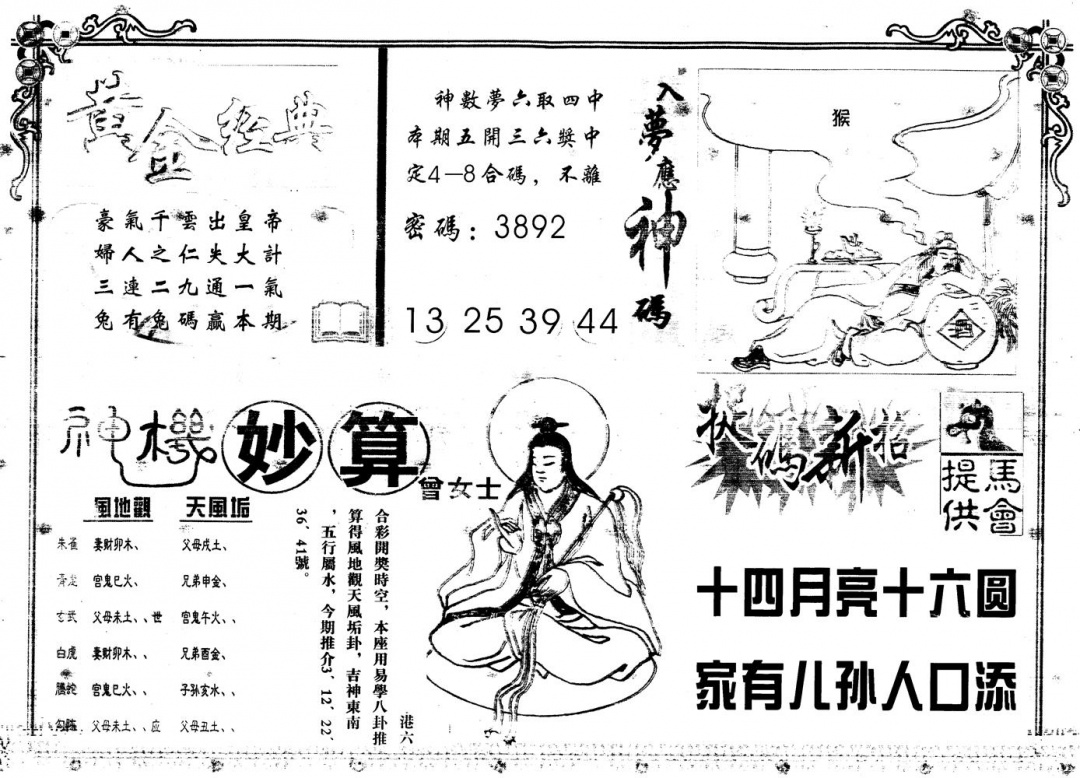 黃金經典
豪氣千雲出皇帝
婦人之仁失大計
三連二九通一氣
兔有兔碼贏本期
神數夢六取四中
本期五開三六獎中
定4—8合碼，不離
密碼：3892
13 25 39 44
入夢應神碼
猴
酒
神機妙算
曾女士
風地觀 天風垢
朱雀 妻財卯木、 父母戌土、
青龙 宫鬼巳火、 兄弟申金、
玄武 父母未土、、世 宫鬼午火、、
白虎 妻財卯木、、 兄弟酉金、
騰蛇 宫鬼巳火、、 子孙亥水、、
勾陈 父母未土、、应 父母丑土、、
港六
合彩開獎時空，本座用易學八卦推
算得風地觀天風垢卦，吉神東南
，五行屬水，今期推介3、12、22、
36、41號。
状碼新招
馬會
提供
十四月亮十六圆
家有儿孙人口添